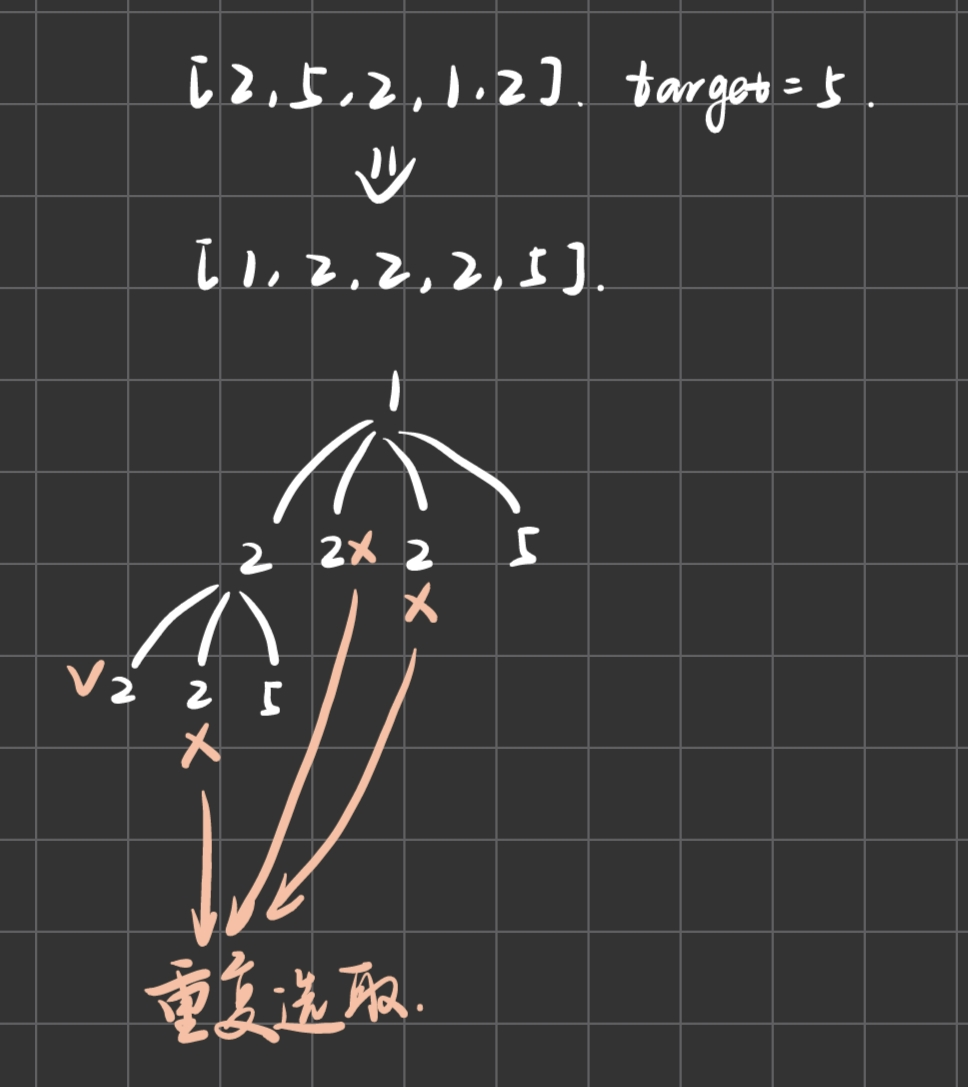 [2,5,2,1,2]. target=5.
[1,2,2,2,5].
1
2 2x 2 5
x
v2 2 5
x
重复选取.